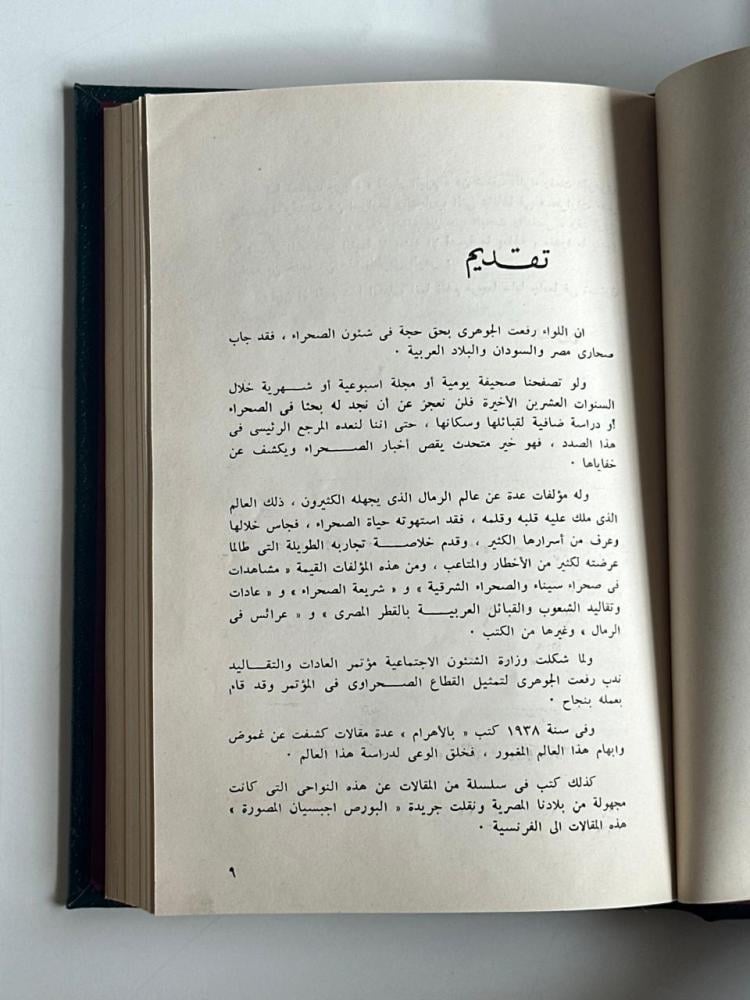 تقديم
ان اللواء رفعت الجوهرى بحق حجة فى شئون الصحراء ، فقد جاب
صحارى مصر والسودان والبلاد العربية .
ولو تصفحنا صحيفة يومية أو مجلة اسبوعية أو شهرية خلال
السنوات العشرين الأخيرة فلن نعجز عن أن نجد له بحثا فى الصحراء
أو دراسة ضافية لقبائلها وسكانها ، حتى اننا لنعده المرجع الرئيسى فى
هذا الصدد ، فهو خير متحدث يقص أخبار الصحراء ويكشف عن
خفاياها .
وله مؤلفات عدة عن عالم الرمال الذى يجهله الكثيرون ، ذلك العالم
الذى ملك عليه قلبه وقلمه ، فقد استهوته حياة الصحراء ، فجاس خلالها
وعرف من أسرارها الكثير ، وقدم خلاصة تجاربه الطويلة التى طالما
عرضته لكثير من الأخطار والمتاعب ، ومن هذه المؤلفات القيمة « مشاهدات
فى صحراء سيناء والصحراء الشرقية » و « شريعة الصحراء » و « عادات
وتقاليد الشعوب والقبائل العربية بالقطر المصرى » و « عرائس فى
الرمال » وغيرها من الكتب .
ولما شكلت وزارة الشئون الاجتماعية مؤتمر العادات والتقاليد
ندب رفعت الجوهرى لتمثيل القطاع الصحراوى فى المؤتمر وقد قام
بعمله بنجاح .
وفى سنة ١٩٣٨ كتب « بالأهرام » عدة مقالات كشفت عن غموض
وابهام هذا العالم المغمور ، فخلق الوعى لدراسة هذا العالم .
كذلك كتب فى سلسلة من المقالات عن هذه النواحى التى كانت
مجهولة من بلادنا المصرية ونقلت جريدة « البورص اجبسيان المصورة »
هذه المقالات الى الفرنسية .
٩